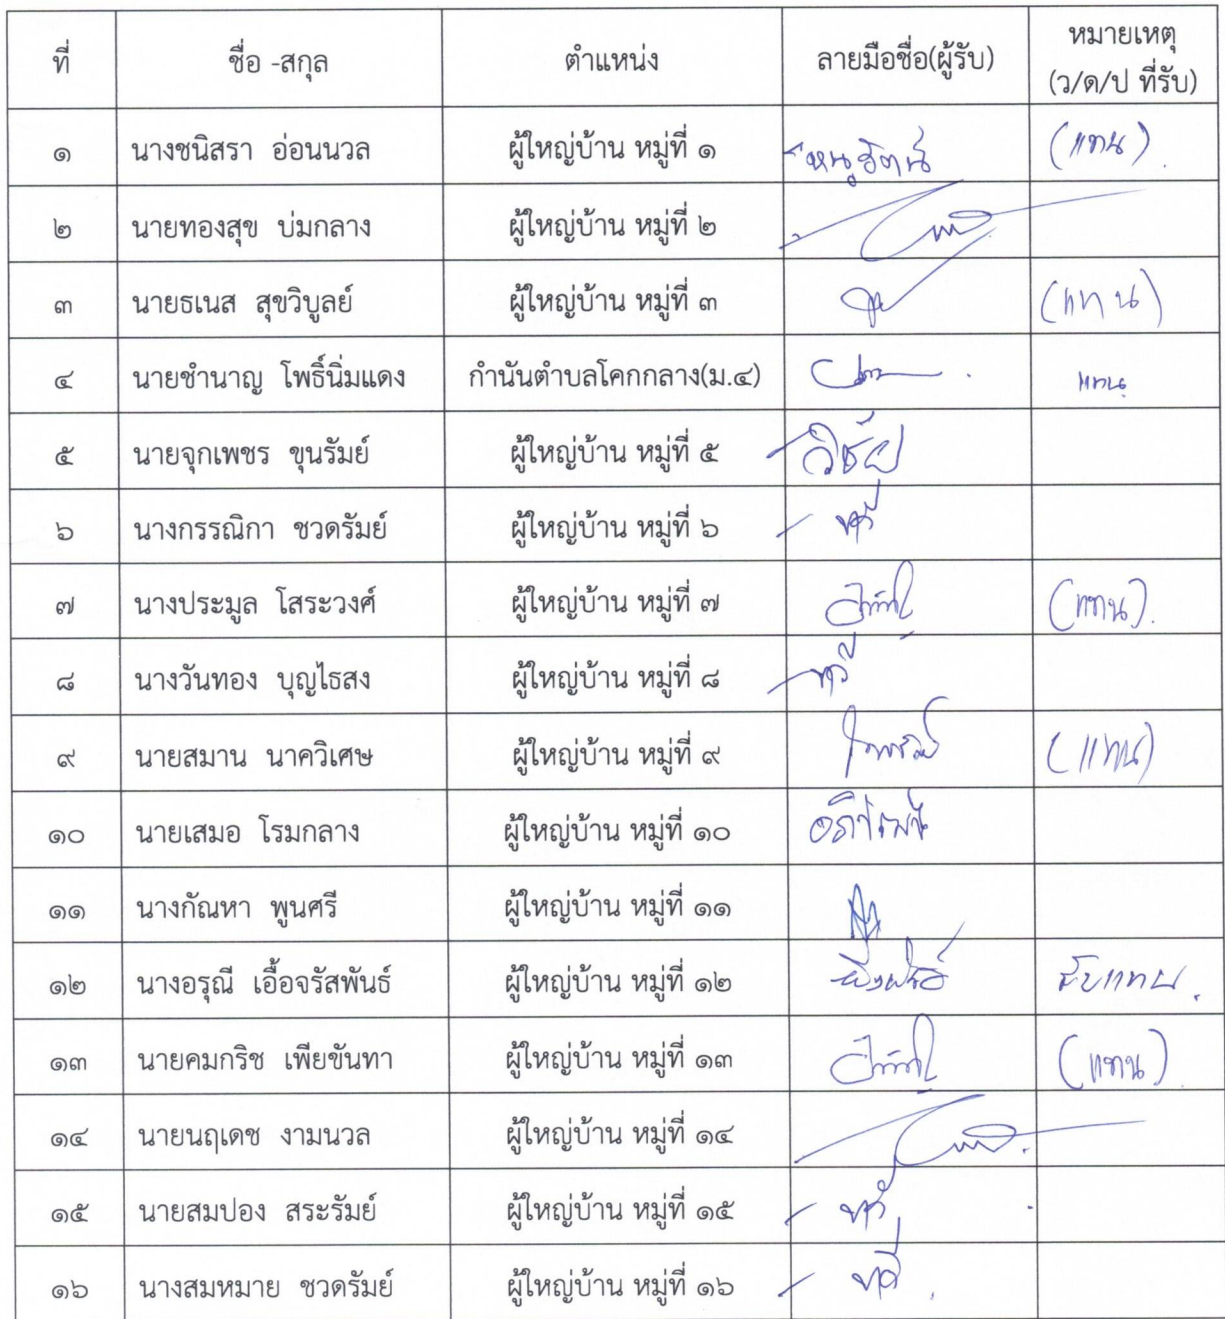 ที่ ชื่อ -สกุล ตำแหน่ง ลายมือชื่อ(ผู้รับ) หมายเหตุ
(ว/ด/ป ที่รับ)
๑ นางชนิสรา อ่อนนวล ผู้ใหญ่บ้าน หมู่ที่ ๑ (แทน)
๒ นายทองสุข บ่มกลาง ผู้ใหญ่บ้าน หมู่ที่ ๒
๓ นายธเนส สุขวิบูลย์ ผู้ใหญ่บ้าน หมู่ที่ ๓ (แทน)
๔ นายชำนาญ โพธิ์นิ่มแดง กำนันตำบลโคกกลาง(ม.๔) แทน
๕ นายจุกเพชร ขุนรัมย์ ผู้ใหญ่บ้าน หมู่ที่ ๕ วิชัย
๖ นางกรรณิกา ชวดรัมย์ ผู้ใหญ่บ้าน หมู่ที่ ๖
๗ นางประมูล โสระวงศ์ ผู้ใหญ่บ้าน หมู่ที่ ๗ (แทน).
๘ นางวันทอง บุญไธสง ผู้ใหญ่บ้าน หมู่ที่ ๘
๙ นายสมาน นาควิเศษ ผู้ใหญ่บ้าน หมู่ที่ ๙ (แทน)
๑๐ นายเสมอ โรมกลาง ผู้ใหญ่บ้าน หมู่ที่ ๑๐
๑๑ นางกัณหา พูนศรี ผู้ใหญ่บ้าน หมู่ที่ ๑๑
๑๒ นางอรุณี เอื้อจรัสพันธ์ ผู้ใหญ่บ้าน หมู่ที่ ๑๒ รับแทน.
๑๓ นายคมกริช เพียขันทา ผู้ใหญ่บ้าน หมู่ที่ ๑๓ (แทน)
๑๔ นายนฤเดช งามนวล ผู้ใหญ่บ้าน หมู่ที่ ๑๔
๑๕ นายสมปอง สระรัมย์ ผู้ใหญ่บ้าน หมู่ที่ ๑๕
๑๖ นางสมหมาย ชวดรัมย์ ผู้ใหญ่บ้าน หมู่ที่ ๑๖